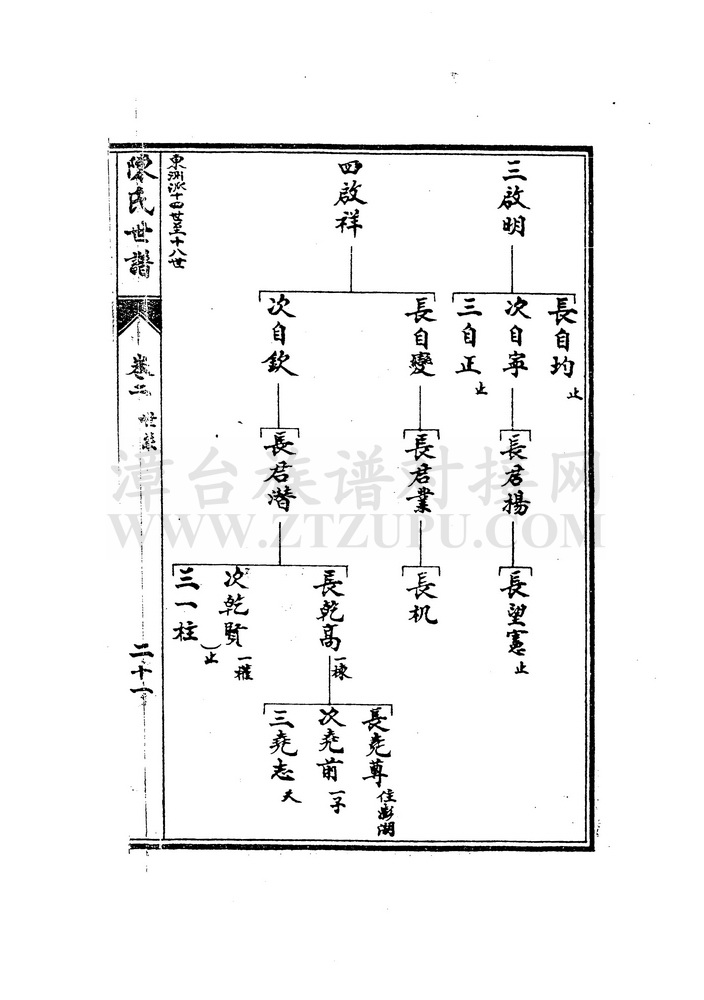 三啟明
長自均止
次自寧
三自正止
長君揚
長望憲止
四啟祥
長自變
次自欽
長君業
長君潛
長机
長乾高一棟
次乾賢一權
三一柱
止
長堯尊住澎湖
次堯前一子
三堯志
東洲派十四世至十八世
陳氏世譜
卷二
世系
二十一
漳台族谱对接网
WWW.ZTZUPU.COM